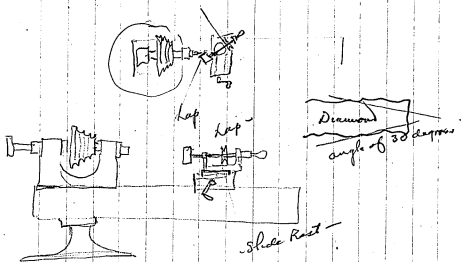 Lap
Lap
Diamond
angle of 30 degrees
Slide Rest